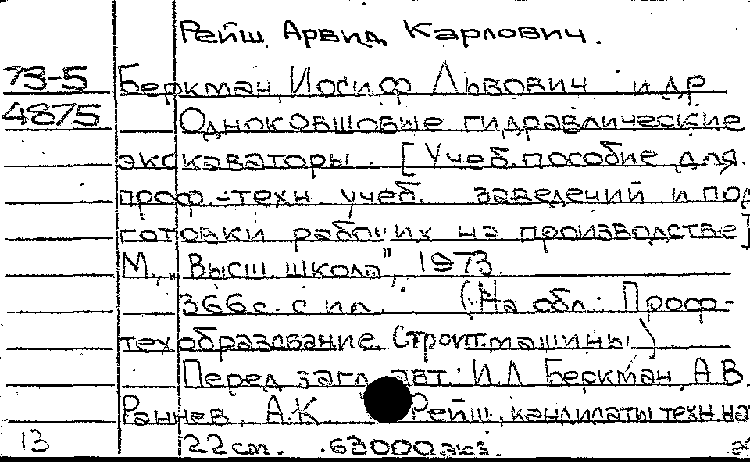 Рейш, Арвид Карлович.
73-5 Беркман, Иосиф Львович и др
4875 Одноковшовые гидравлические
экскаваторы. [Учеб. пособие для
проф.-техн. учеб. заведений и под
готовки рабочих на производстве]
М., „Высш. школа", 1973.
366 с. с ил. (На обл.: Проф-
техобразование. Строит. машины)
Перед загл. авт.: И.Л. Беркман, А.В.
Раннев, А.К. Рейш, кандидаты техн. на
13 22 см. 63000 экз.